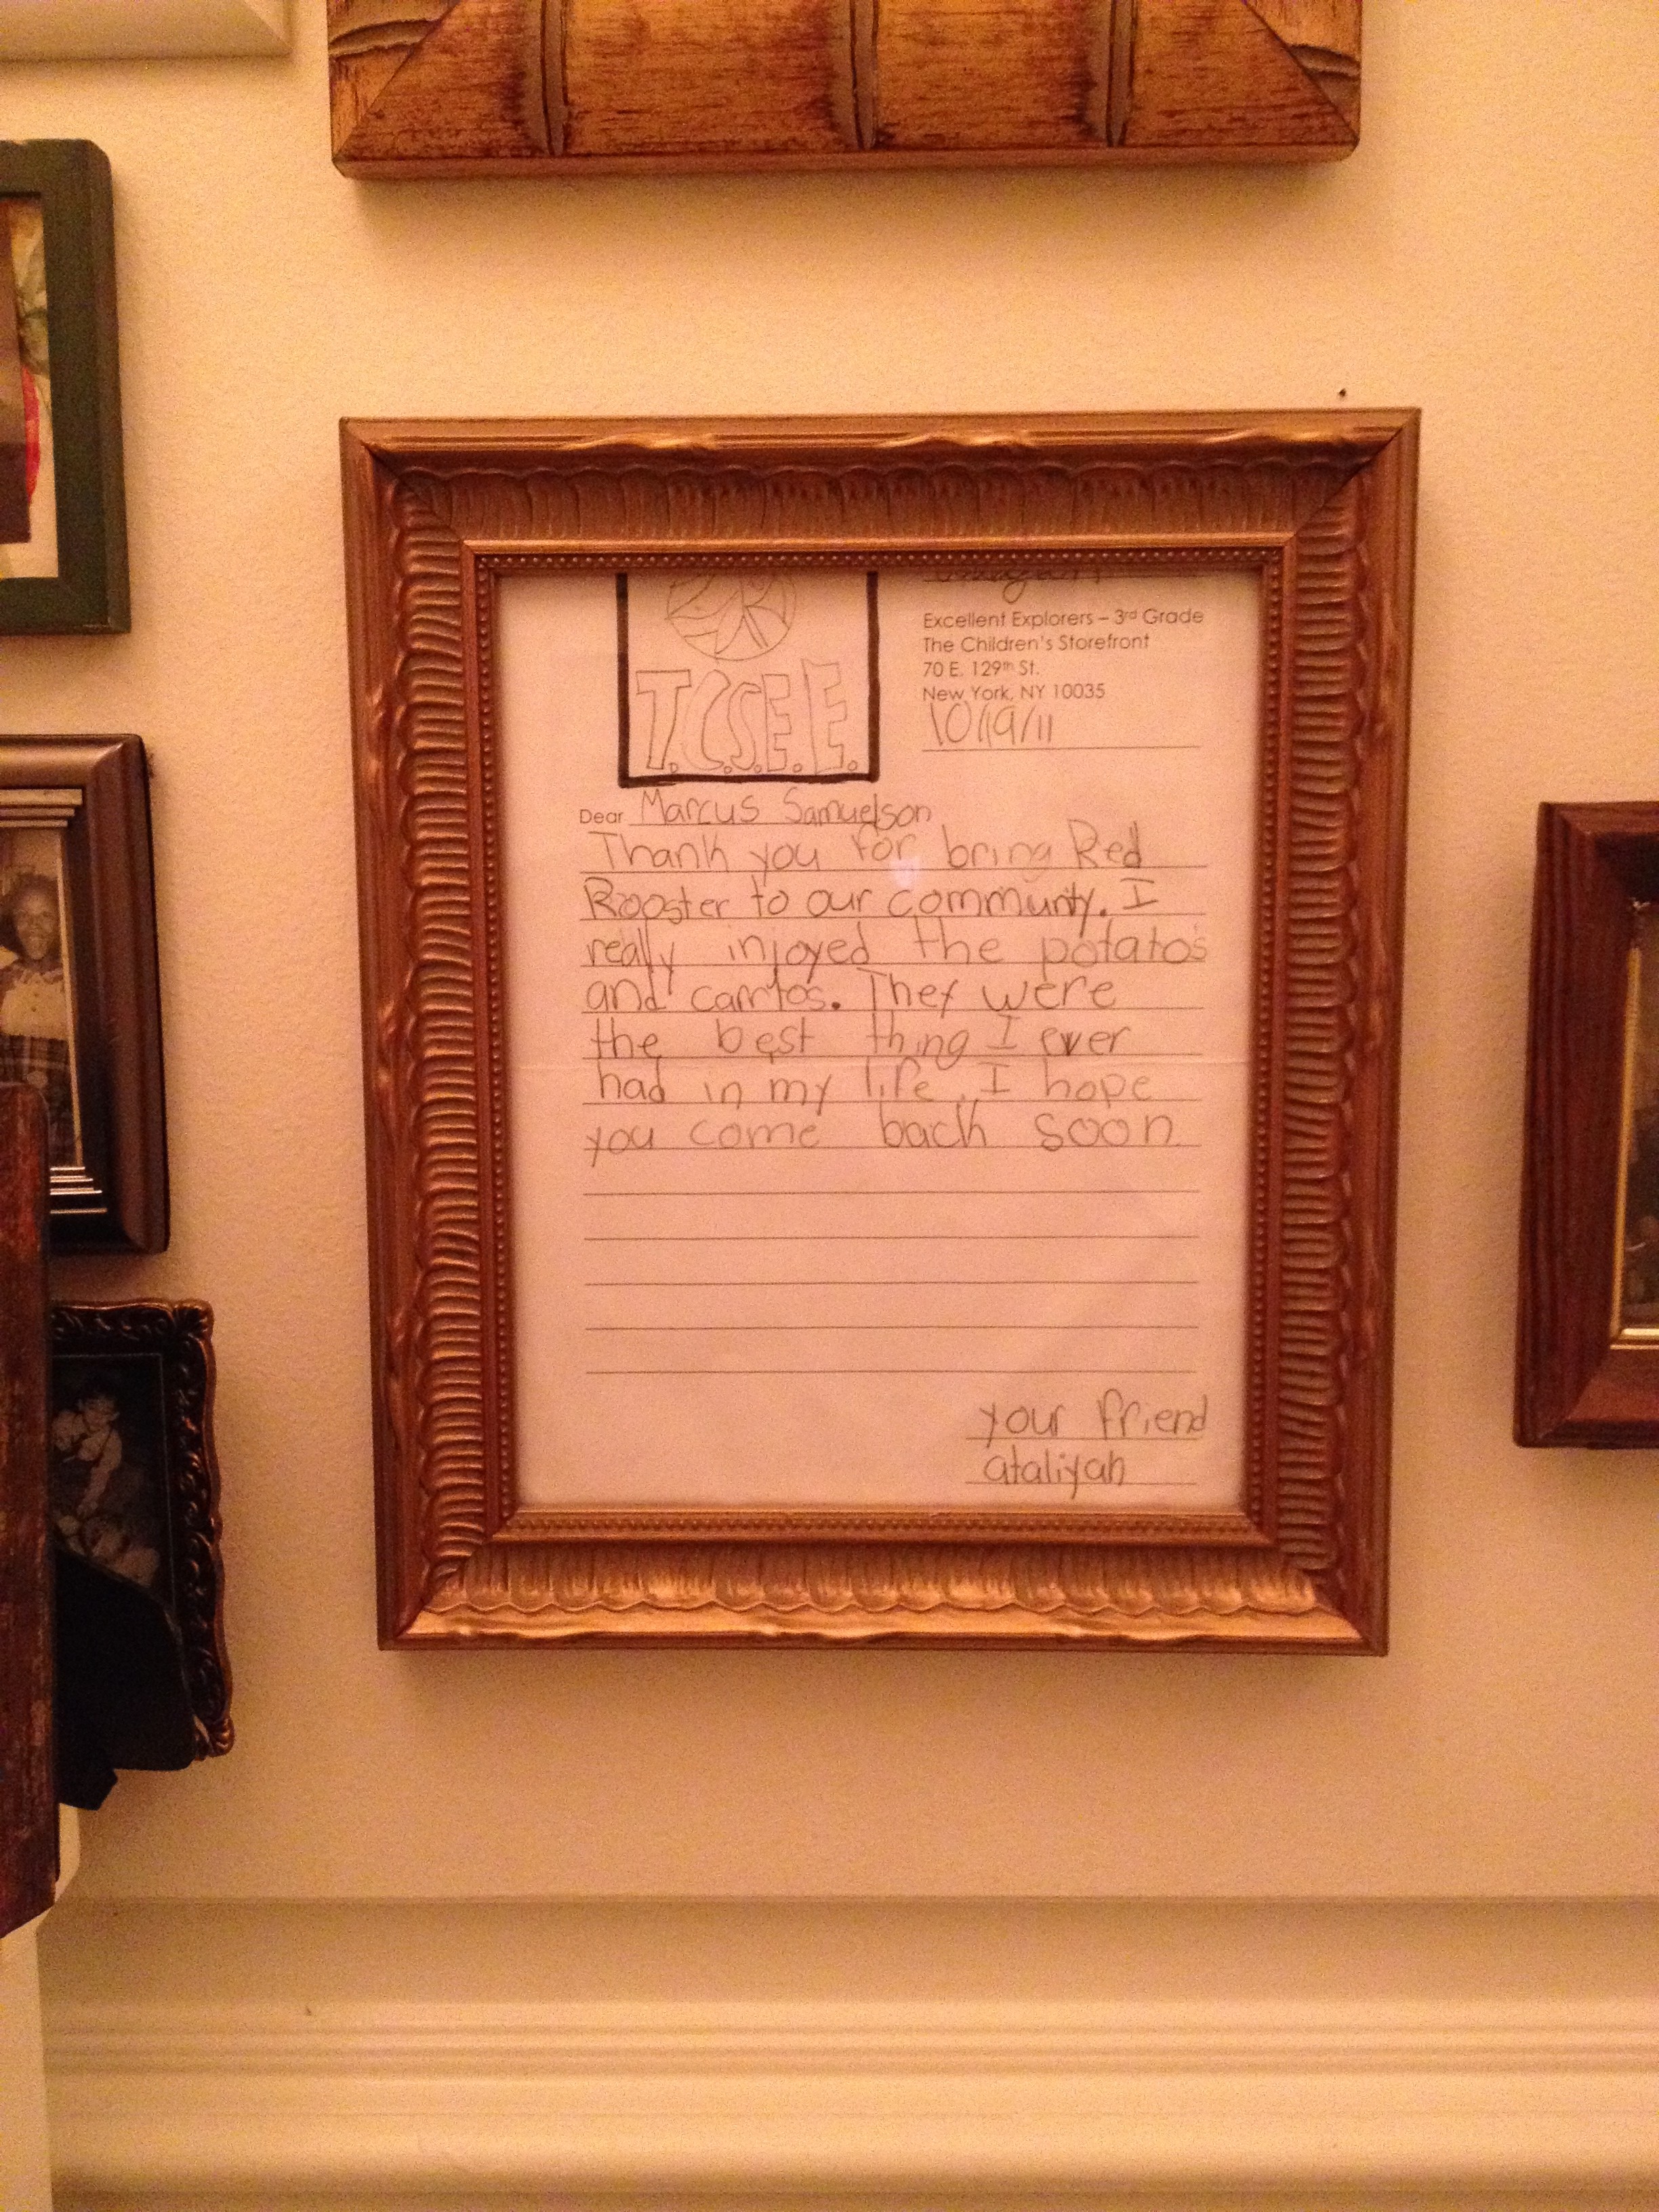 T.C.S.E.E.
Excellent Explorers – 3rd Grade
The Children's Storefront
70 E. 129th St.
New York, NY 10035
10/19/11
Dear Marcus Samuelson
Thank you for bring Red
Rooster to our community. I
really injoyed the potatos
and carrtos. They were
the best thing I ever
had in my life. I hope
you come back soon
your friend
ataliyah